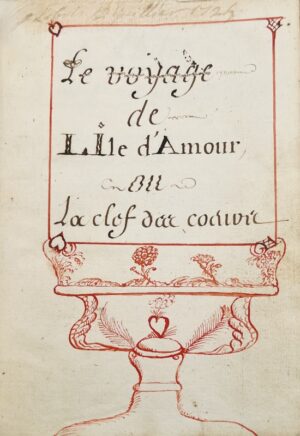 Le voyage
de
L'Ile d'Amour,
ou
La clef des coeurs